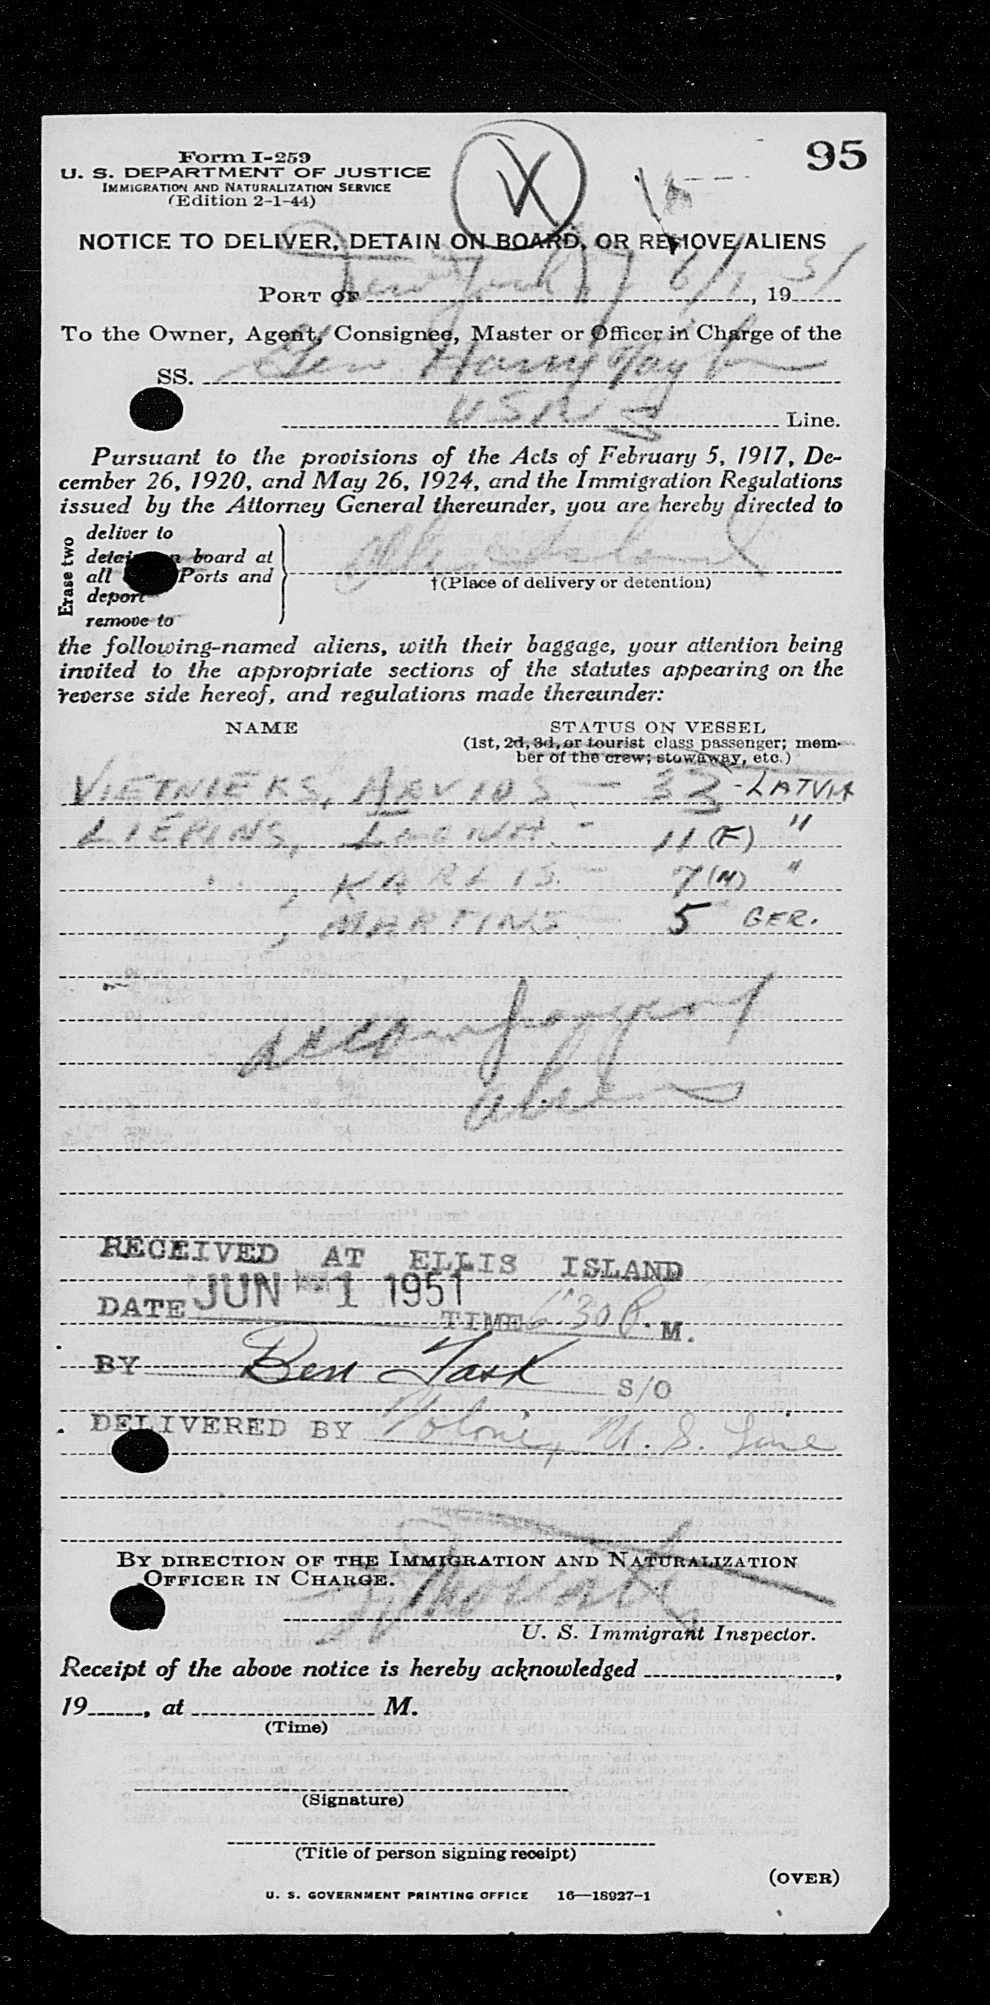 95
Form I-259
U. S. DEPARTMENT OF JUSTICE
IMMIGRATION AND NATURALIZATION SERVICE
(Edition 2-1-44)
NOTICE TO DELIVER, DETAIN ON BOARD, OR REMOVE ALIENS
PORT OF New York NY 6/1, 1951
To the Owner, Agent, Consignee, Master or Officer in Charge of the
SS. Gen Harry Taylor
USN Line.
Pursuant to the provisions of the Acts of February 5, 1917, De-
cember 26, 1920, and May 26, 1924, and the Immigration Regulations
issued by the Attorney General thereunder, you are hereby directed to
Erase two
deliver to
detain on board at
all Ports and
deport
remove to
Ellis Island
†(Place of delivery or detention)
the following-named aliens, with their baggage, your attention being
invited to the appropriate sections of the statutes appearing on the
reverse side hereof, and regulations made thereunder:
NAME STATUS ON VESSEL
(1st, 2d, 3d, or tourist class passenger; mem-
ber of the crew; stowaway, etc.)
VIETNIEKS, ARVIDS - 33 - LATVIA
LIEPINS, - 11 (F) "
" , KARLIS - 7 (M) "
, MARTINS - 5 GER.
accompanying
aliens
RECEIVED AT ELLIS ISLAND
DATE JUN -1 1951 TIME 6:30 P. M.
BY Ben Task S/O
DELIVERED BY U. S. Line
BY DIRECTION OF THE IMMIGRATION AND NATURALIZATION
OFFICER IN CHARGE.
U. S. Immigrant Inspector.
Receipt of the above notice is hereby acknowledged ,
19 , at M.
(Time)
(Signature)
(Title of person signing receipt)
(OVER)
U. S. GOVERNMENT PRINTING OFFICE 16—18927-1